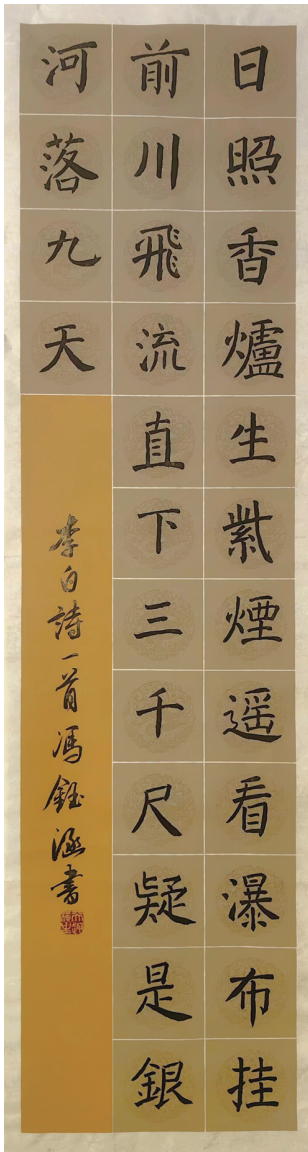 日照香爐生紫煙遥看瀑布挂
前川飛流直下三千尺疑是銀
河落九天
李白詩一首馮鈺涵書